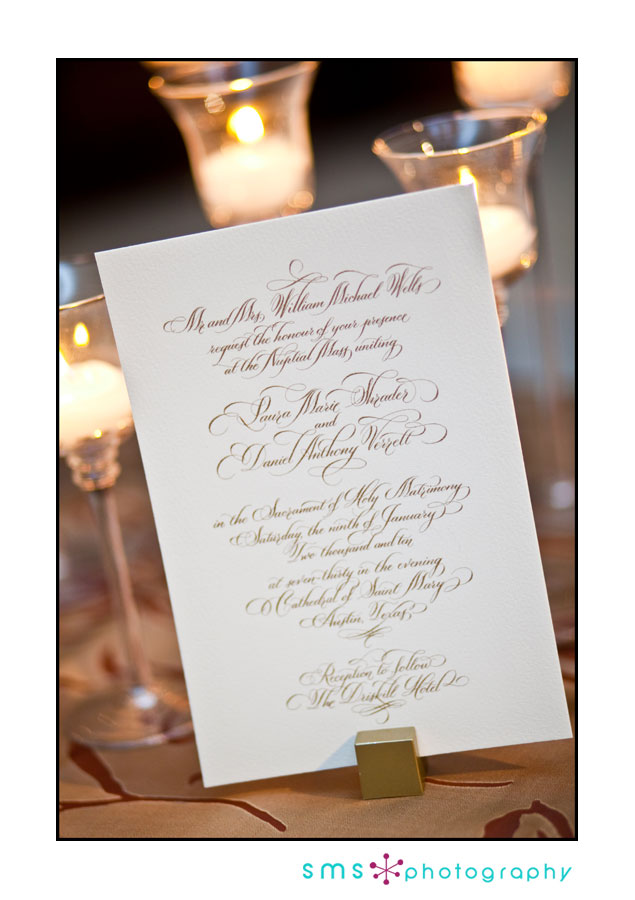 Mr. and Mrs. William Michael Wells
request the honour of your presence
at the Nuptial Mass uniting
Laura Marie Shrader
and
Daniel Anthony Verrett
in the Sacrament of Holy Matrimony
Saturday, the ninth of January
Two thousand and ten
at seven-thirty in the evening
Cathedral of Saint Mary
Austin, Texas
Reception to follow
The Driskill Hotel
sms photography